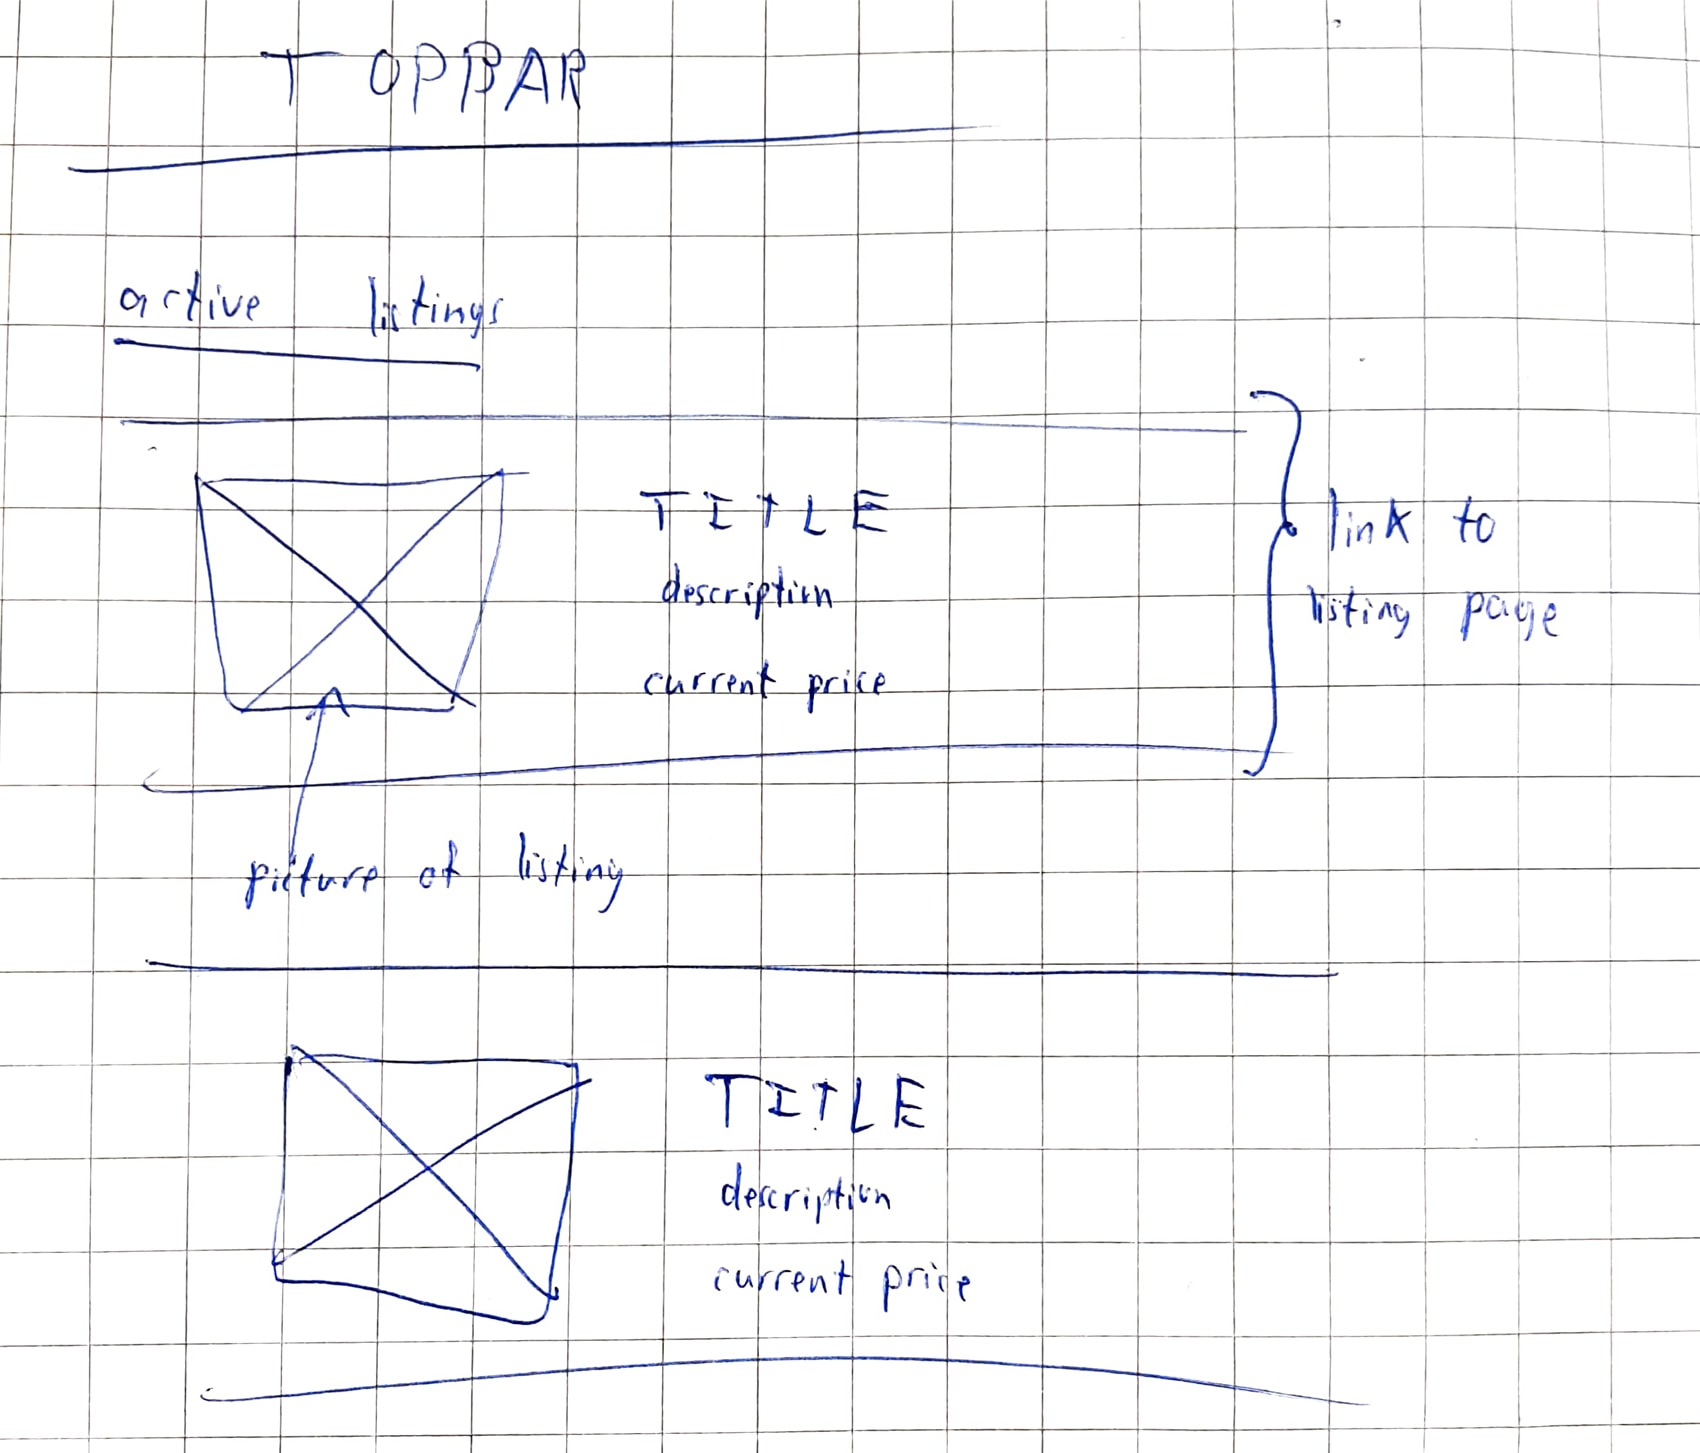 TOPBAR
active listings
TITLE
description
current price
link to
listing page
picture of listing
TITLE
description
current price